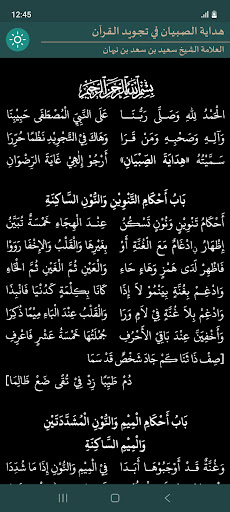 12:45
هداية الصبيان في تجويد القرآن
العلامة الشيخ سعيد بن سعد بن نبهان
بِسْمِ اللَّهِ الرَّحْمَنِ الرَّحِيمِ
الْحَمْدُ لِلَّهِ وَصَلَّى رَبُّنَا عَلَى النَّبِيِّ الْمُصْطَفَى حَبِيبِنَا
وَآلِهِ وَصَحْبِهِ وَمَنْ قَرَا وَهَاكَ فِي التَّجْوِيدِ نَظْمًا حُرِّرَا
سَمَّيْتُهُ «هِدَايَةَ الصِّبْيَانِ» أَرْجُو إِلَهِي غَايَةَ الرِّضْوَانِ
بَابُ أَحْكَامِ التَّنْوِينِ وَالنُّونِ السَّاكِنَةِ
أَحْكَامُ تَنْوِينٍ وَنُونٍ تَسْكُنُ عِنْدَ الْهِجَاءِ خَمْسَةٌ تُبَيَّنُ
إِظْهَارُ ادْغَامٌ مَعَ الْغُنَّةِ أَوْ بِغَيْرِهَا وَالْقَلْبُ وَالْإِخْفَا رَوَوْا
فَاظْهِرْ لَدَى هَمْزٍ وَهَاءٍ حَاءِ وَالْعَيْنِ ثُمَّ الْغَيْنِ ثُمَّ الْخَاءِ
وَادْغِمْ بِغُنَّةٍ بِيَنْمُو لَا إِذَا كَانَا بِكِلْمَةٍ كَدُنْيَا فَانْبِذَا
وَادْغِمْ بِلَا غُنَّةٍ فِي لَامٍ وَرَا وَالْقَلْبُ عِنْدَ الْبَاءِ مِيمًا ذُكِرَا
وَأَخْفِيَنَّ عِنْدَ بَاقِي الْأَحْرُفِ جُمْلَتُهَا خَمْسَةُ عَشْرٍ فَاعْرِفِ
[صِفْ ذَا ثَنَا كَمْ جَادَ شَخْصٌ قَدْ سَمَا
دُمْ طَيِّبًا زِدْ فِي تُقًى ضَعْ ظَالِمَا]
بَابُ أَحْكَامِ الْمِيمِ وَالنُّونِ الْمُشَدَّدَتَيْنِ
وَالْمِيمِ السَّاكِنَةِ
وَغُنَّةٌ قَدْ أَوْجَبُوهَا أَبَدَا فِي الْمِيمِ وَالنُّونِ إِذَا مَا شُدِّدَا